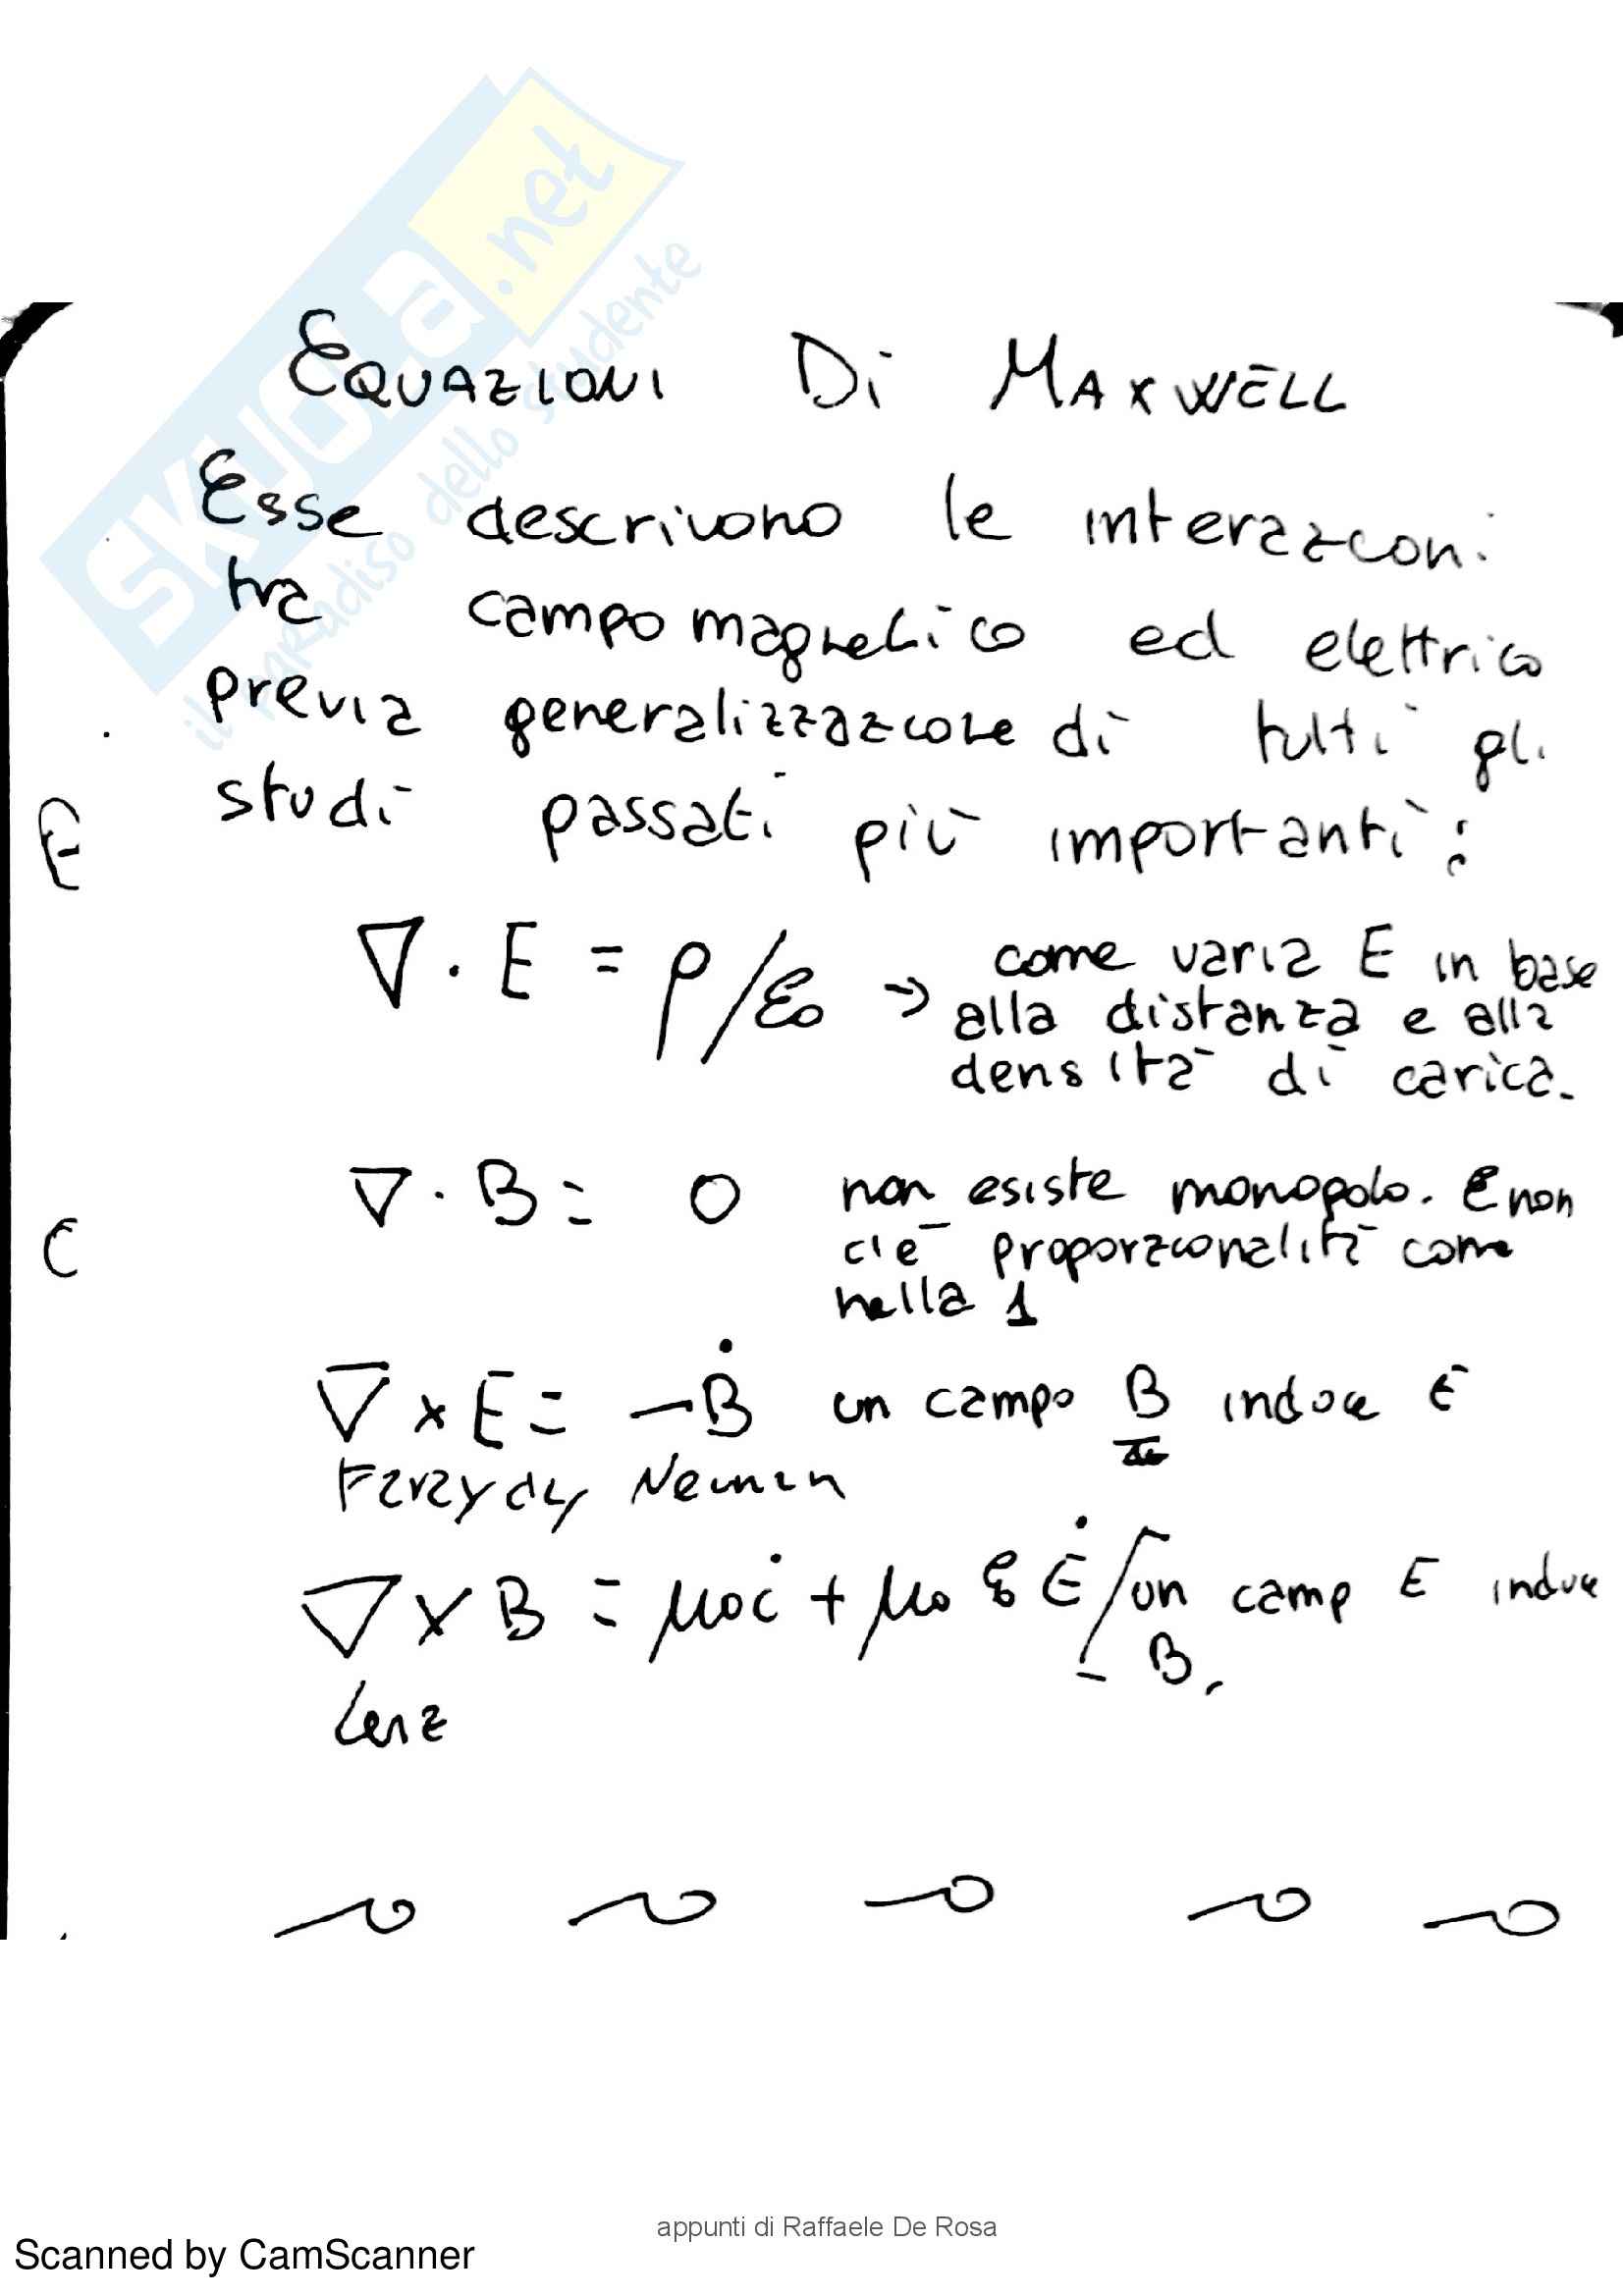 SKUOLa.net
il paradiso dello studente
EQUAZIONI Di MAXWELL
Esse descrivono le interazioni
tra campo magnetico ed elettrico
previa generalizzazione di tutti gli
studi passati più importanti:
E
∇ · E = ρ/ε0 → come varia E in base
alla distanza e alla
densità di carica.
∇ · B = 0 non esiste monopolo. E non
c'è proporzionalità come
nella 1
C
∇ × E = -Ḃ un campo B induce E
Farayday Neuman
∇ × B = μ0i + μ0 ε Ė / un camp E induce
B.
Lenz
appunti di Raffaele De Rosa
Scanned by CamScanner